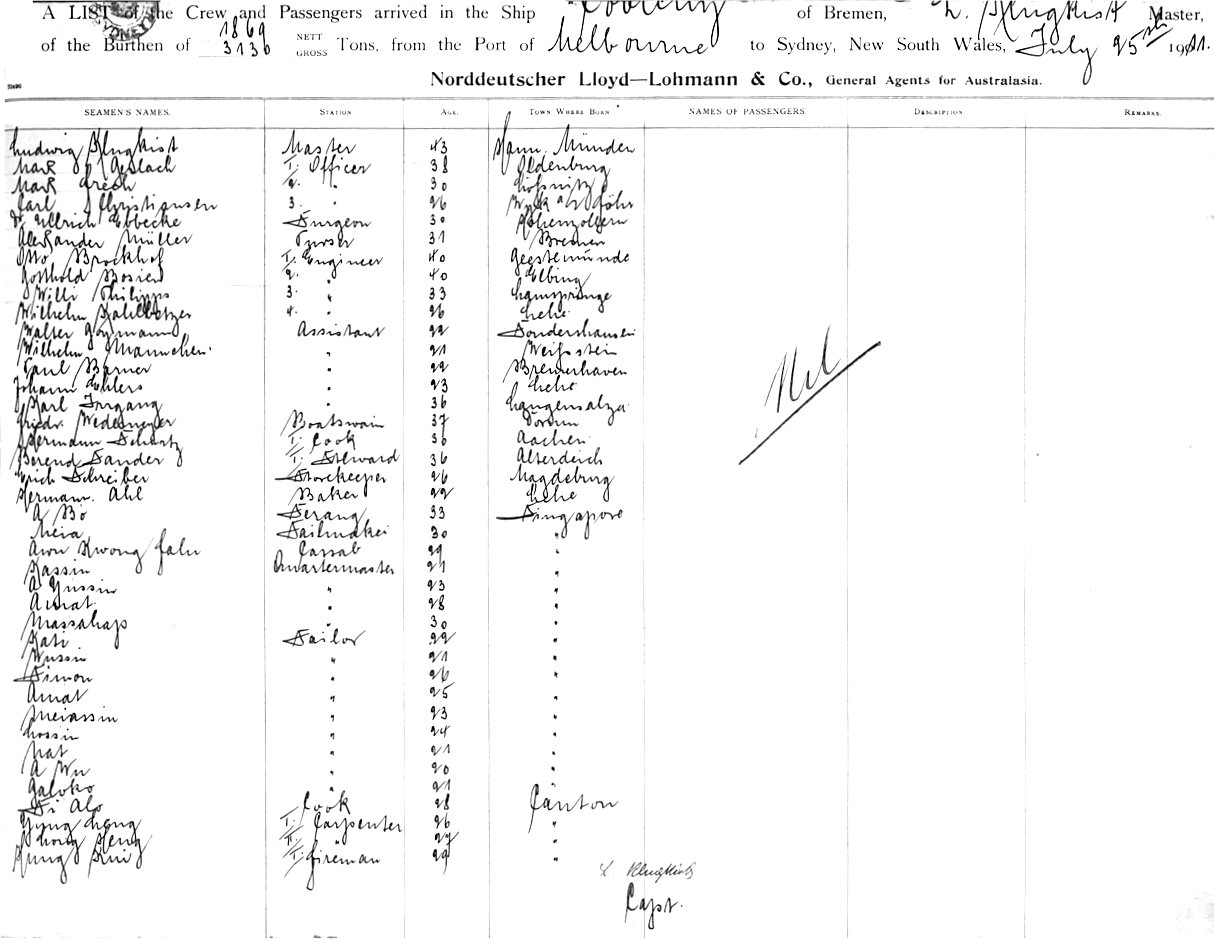 A LIST of the Crew and Passengers arrived in the Ship Coblenz of Bremen, L. Klugkist Master,
of the Burthen of 1869 3136 NETT GROSS Tons, from the Port of Melbourne to Sydney, New South Wales, July 25th 1911.
Norddeutscher Lloyd—Lohmann & Co., General Agents for Australasia.
SEAMEN'S NAMES. STATION AGE. TOWN WHERE BORN NAMES OF PASSENGERS DESCRIPTION REMARKS.
Ludwig Klugkist Master 43 Hann. Münden
Max Gerlach I. Officer 38 Oldenburg
Max Grech 2. " 30 Lössnitz
Carl Christiansen 3. " 26 Wyk a/ Föhr
Dr. Ullrich Ebbecke Surgeon 30 Hohenzollern
Alexander Müller Purser 31 Bremen
Otto Brockhof I. Engineer 40 Geestemünde
Gotthold Bosien 2. " 40 Elbing
Willi Philipps 3. " 33 Lamspringe
Wilhelm 4. " 26 Lehe
Walter Assistant 22 Sondershausen
Wilhelm Mannchen. " 21 Weifsstein
Paul Barner " 22 Bremerhaven
Johann Ehlers " 23 Lehe
Karl Irrgang " 36 Langensalza
Friedr. Wedemeyer Boatswain 37 Dorum
Hermann Schartz I. Cook 36 Aachen
Berend Sander I. Steward 36 Alterdeich
Erich Schreiber Storekeeper 26 Magdeburg
Hermann. Ahl Baker 22 Lehe
A Bo Serang 33 Singapore
Meia Sailmaker 30 "
Awu Kwong Cassab 29 "
Kassin Quartermaster 21 "
A Yussin " 23 "
Amat " 28 "
Massahap " 30 "
Kati Sailor 22 "
Wussin " 21 "
Simon " 26 "
Amat " 25 "
Meiassin " 23 "
Lossin " 24 "
Mat " 21 "
A Wu " 20 "
Galoko " 21 "
Si Alo Cook 28 Canton
Yung Leng I. Carpenter 26 "
Chong Heng II. " 27 "
Kung Kui I. Fireman 29 "
Nil
L. Klugkist
Capt.